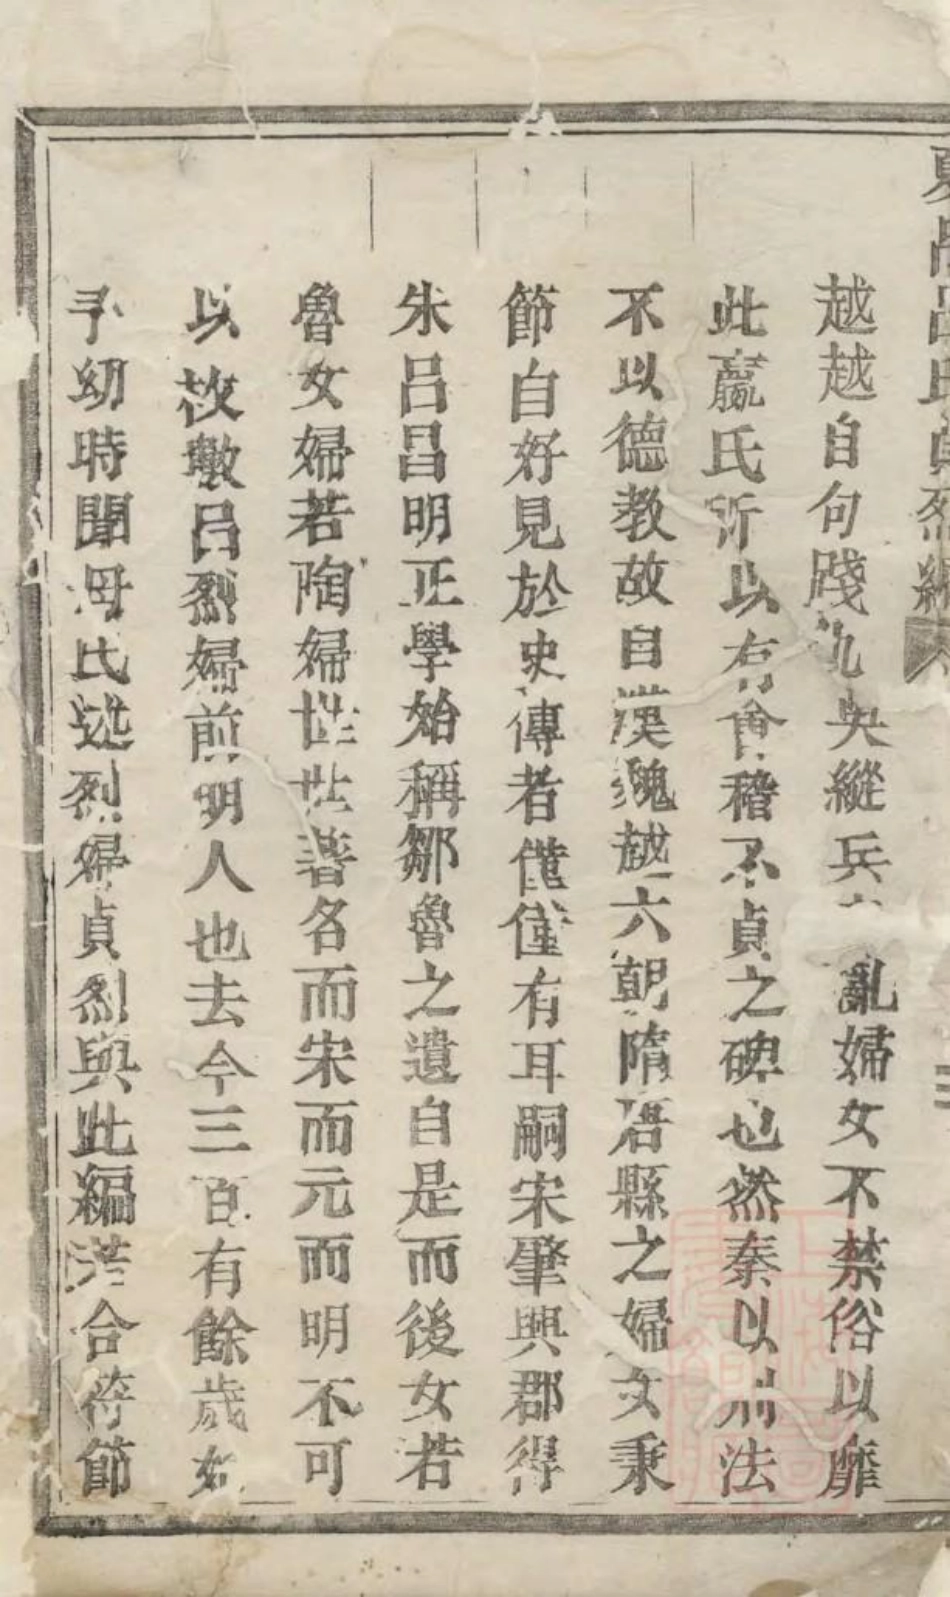 越越自句踐仇吳縱兵亂婦女不禁俗以靡
此嬴氏所以有會稽不貞之碑也然秦以刑法
不以德教故自漢魏越六朝隋唐縣之婦女秉
節自好見於史傳者僅僅有耳嗣宋肇興郡得
朱呂昌明正學始稱鄒魯之遺自是而後女若
魯女婦若陶婦世世著名而宋而元而明不可
以枚數呂烈婦前明人也去今三百有餘歲如
予幼時聞母氏述烈婦貞烈與此編若合符節
呂氏貞烈編